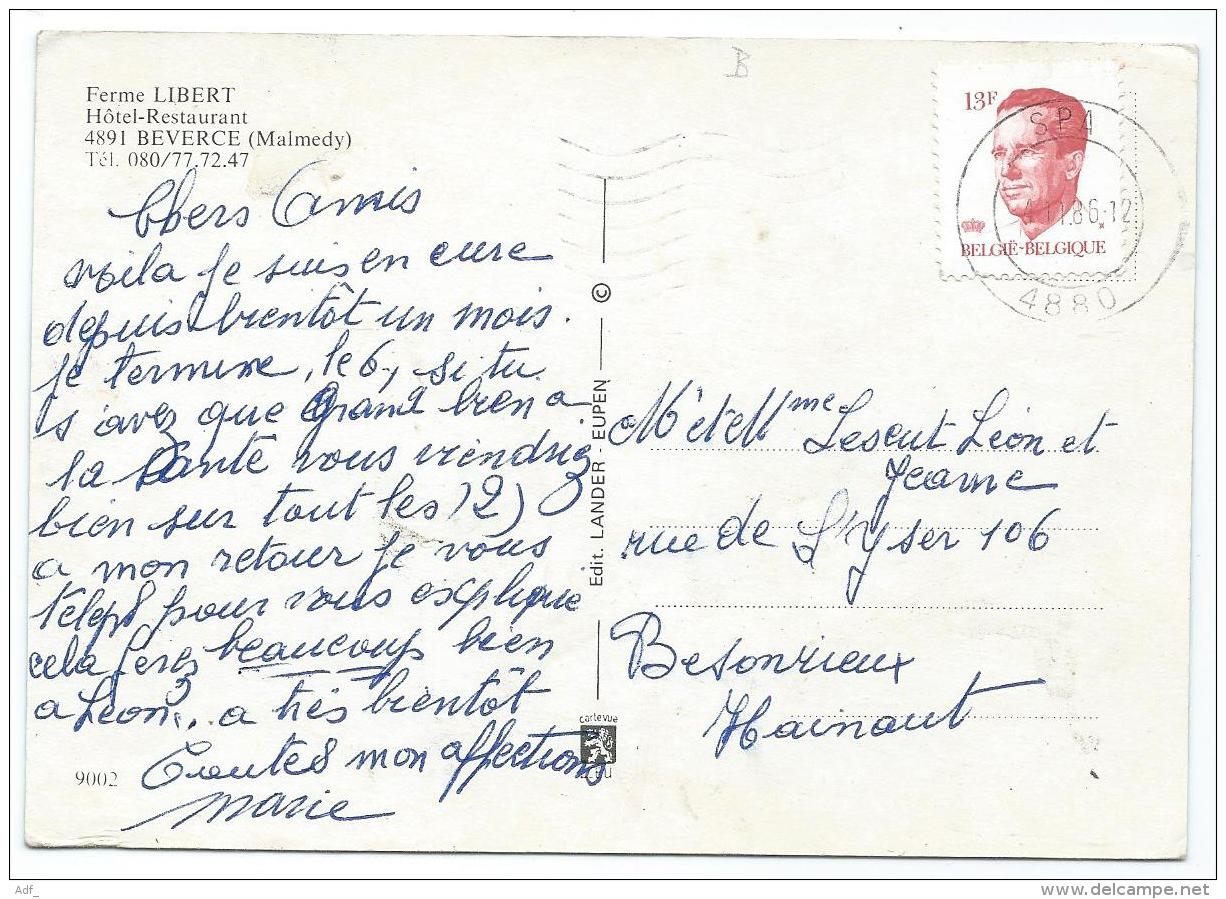 Ferme LIBERT
Hôtel-Restaurant
4891 BEVERCE (Malmedy)
Tél. 080/77.72.47
Chers Amis
voila je suis en cure
depuis bientôt un mois.
je termine, le 6, si tu
s'avez que grand bien a
la Sante vous viendriez
bien sur tout les )2)
a mon retour je vous
téleph pour vous explique
cela ferez beaucoup bien
a Léon,.. a très bientôt
Toutes mon affections
marie
9002
Edit. LANDER - EUPEN ©
carte vue
B
13F
BELGIË-BELGIQUE
SPA
4.11.86-12
4880
Mr et Mme Lescut Léon et
Jeanne
rue de L'Yser 106
Besonrieux
Hainaut
Adf_
www.delcampe.net